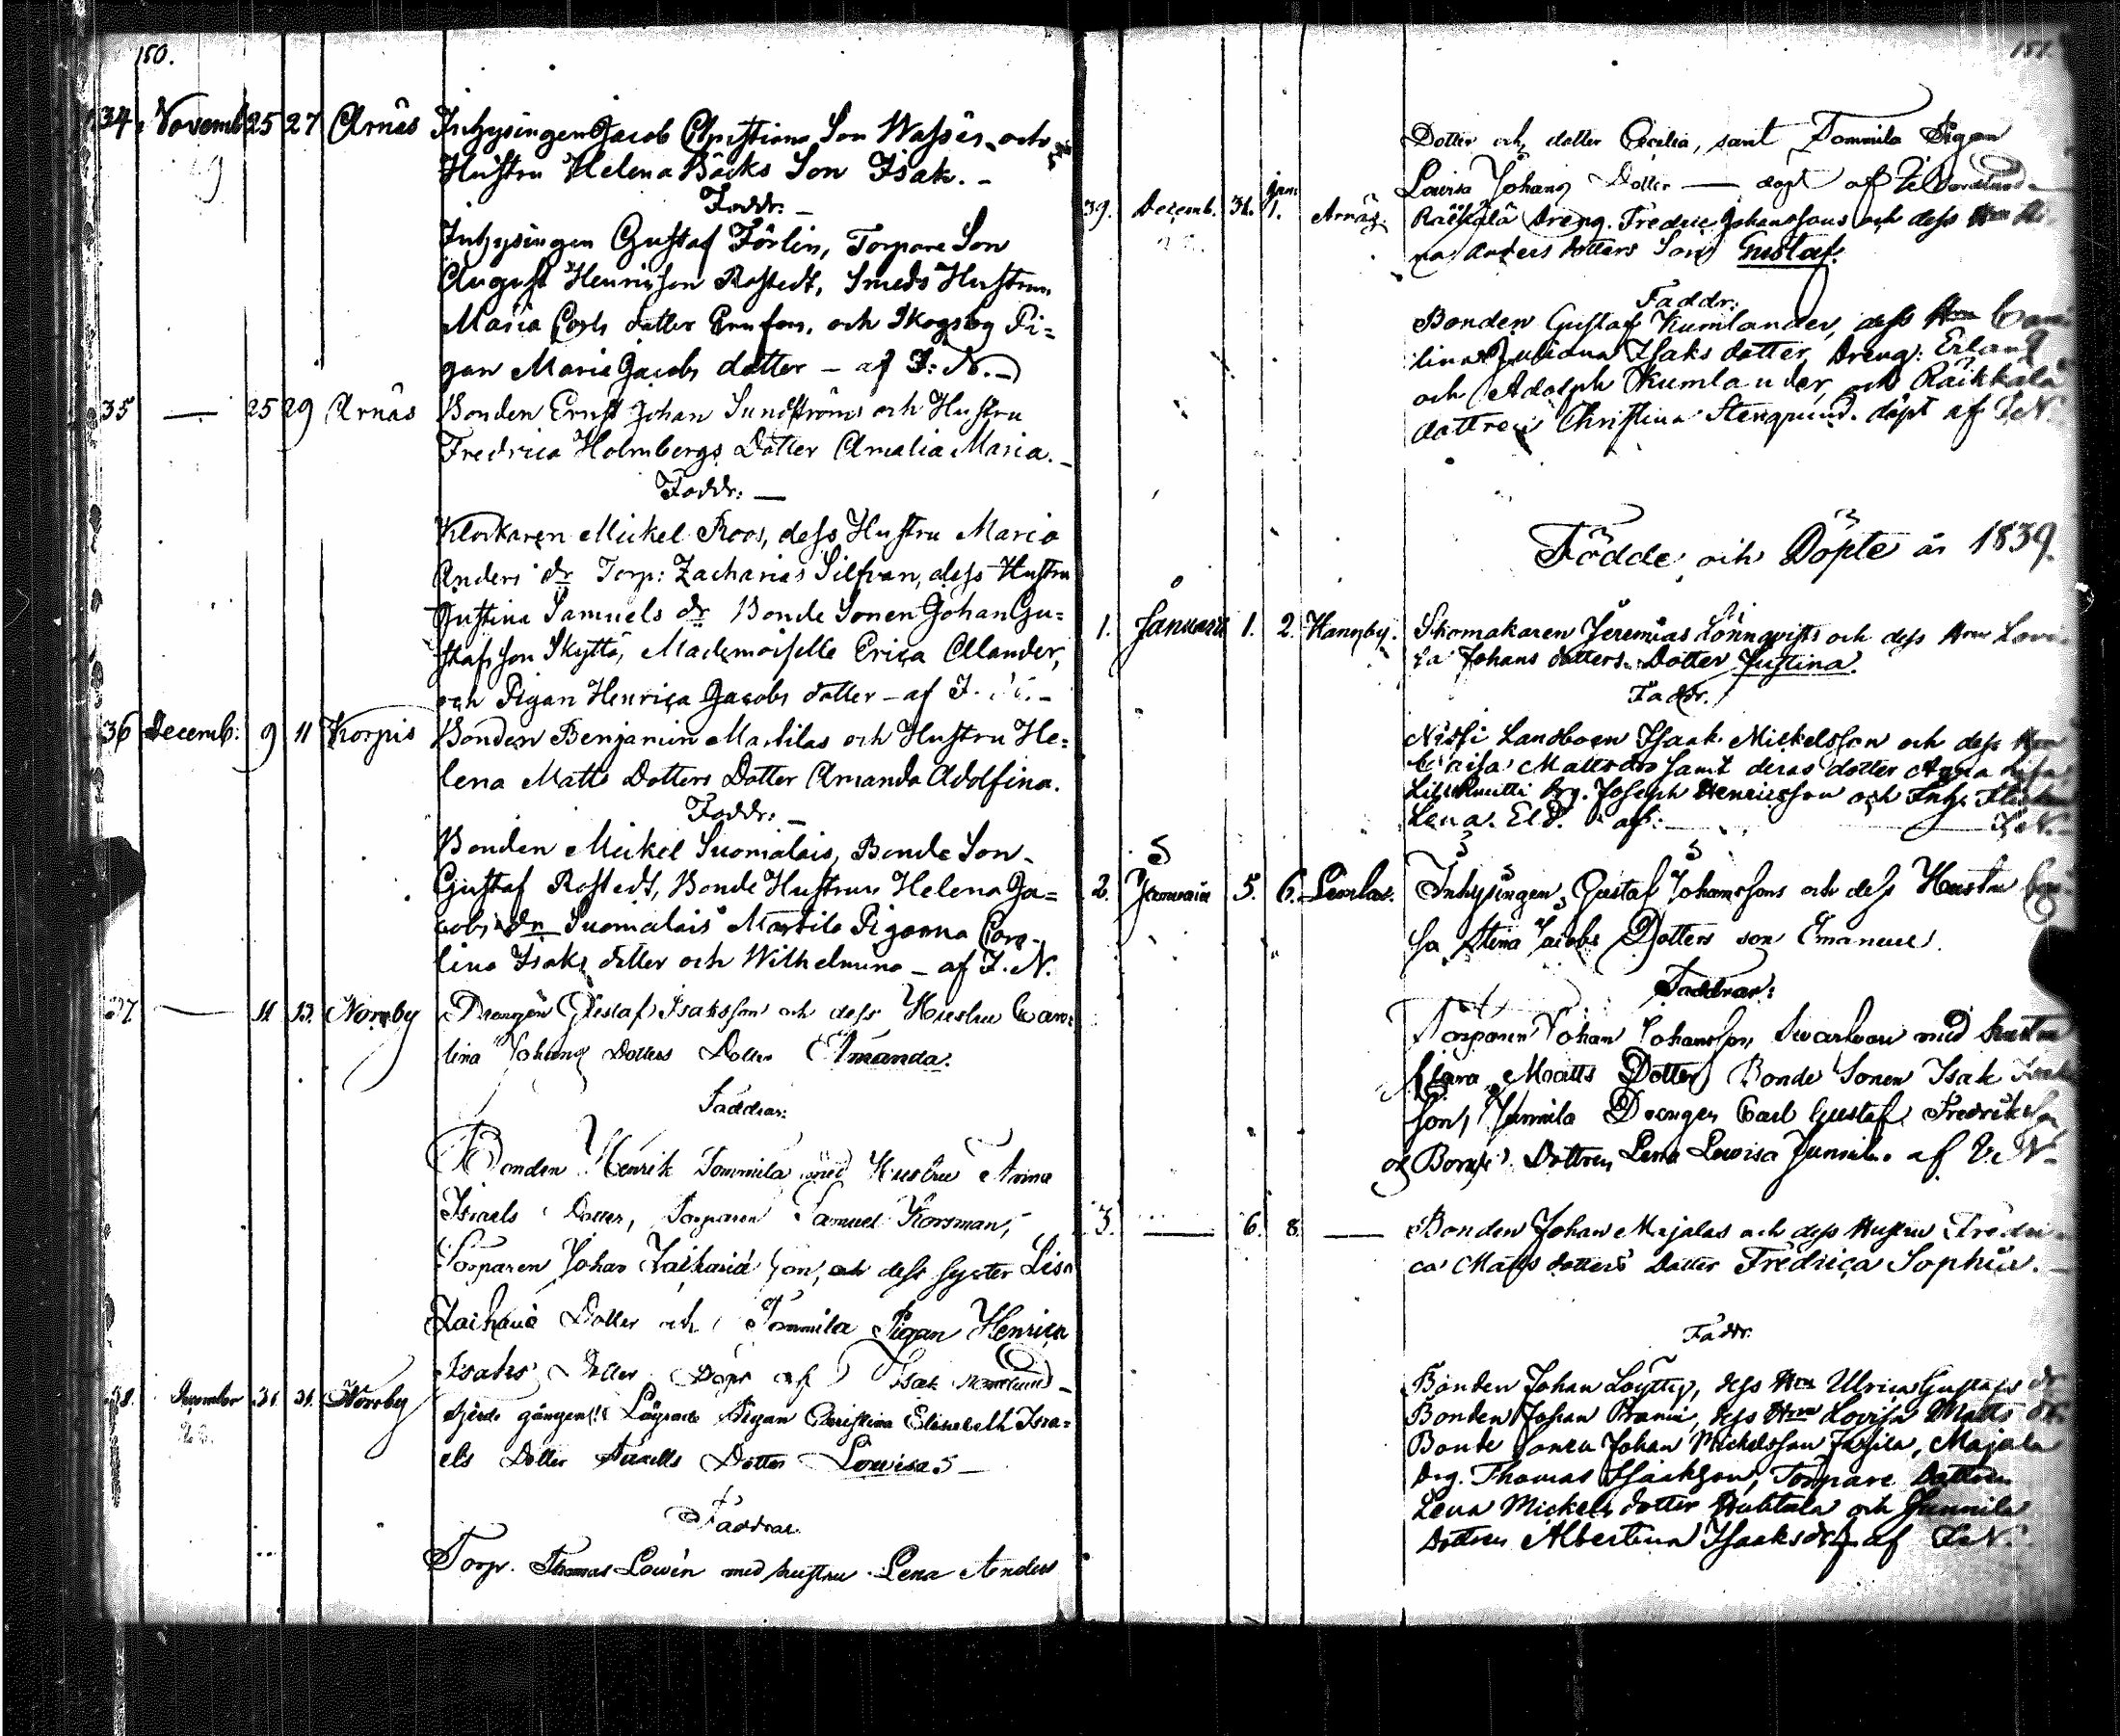 150.
34. Novemb 25 27 Arnäs Inhysingen Jacob Christians Son Wassers och
Hustru Helena Bäcks Son Isak. –
Faddr: –
Inhysingen Gustaf Förlin, Torpare Son
August Henricson Rostedt, Smeds Hustrun
Maria Carls dotter, och Skogsbg Pi=
gan Maria Jacobs dotter – af I. N. –
35 — 25 29 Arnäs Bonden Ernst Johan Sundströms och Hustru
Fredrica Holmbergs Dotter Amalia Maria. –
Faddr: —
Klockaren Mickel Roos, dess Hustru Maria
Anders dr Torp: Zacharias Silfvan, dess Hustru
Justina Samuels dr Bonde Sonen Johan Gu=
stafsson Skyttä, Mademoiselle Erica Allander,
och Pigan Henrica Jacobs dotter – af I. N. –
36 Decemb: 9 11 Korpis Bonden Benjamin Martilas och Hustru He=
lena Matts Dotters Dotter Amanda Adolfina.
Faddr: –
Bonden Mickel Suomalais, Bonde Son
Gustaf Rostedt, Bonde Hustrun Helena Ja=
cobs dr Suomalais Martila Pigorna Caro-
lina Isaks dotter och Wilhelmina – af I. N.
37 — 11 13. Norrby Drengen Gustaf Isaksson och dess Hustru Caro=
lina Johans Dotters Dotter Amanda.
Faddrar:
Bonden Henrik Tommila med Hustru Anna
Israels Dotter, Torparen Samuel Korsman,
Torparen Johan Zachariæ son, och dess syster Lisa
Zachariæ Dotter och Tommila Pigan Henrica
Isaks Dotter Döpt af Isak
38. December 31. 31. Norrby fjerde gången!!! Lägrade Pigan Christina Elisabeth Isra=
els Dotter Dotter Lowisa –
Faddrar
Torp. Thomas Lowén med hustru Lena Anders
151.
Dotter och dotter Cecilia, samt Tommila Pigan
Lovisa Johans Dotter — döpt af
39. Decemb. 31. Jan 1. Arnäs. Räikälä Dreng. Fredric Johanssons och dess Hru
na Anders dotters Son Gustaf.
Faddr:
Bonden Gustaf Kumlander, dess Hru Caro
lina Juliana Isaks dotter, Dreng: Erland
och Adolph Kumlander, och Räikkälä
dottren Christina Stenqvist. döpt af I. N.
Födde och Döpte år 1839.
1. Januarii 1. 2. Hannby. Skomakaren Jeremias Lönnqvists och dess Hru Lovi
sa Johans dotters Dotter Justina.
Faddr.
Landboen Isaak Mickelsson och dess Hru
Caisa Matts dr samt deras dotter Anna Lisa
Drg. Joseph Henricsson och Inh:
Lena. El.d. af: — I. N.
2. Januarii 5. 6. Inhysingen, Gustaf Johanssons och dess Hustru Cai
sa Stina Jacobs Dotters son Emanuel.
Faddrar:
Torparen Johan Johansson Swarfvare med hustru
Clara Matts Dotter, Bonde Sonen Isak Isak
son, Junnila Drengen Carl Gustaf Fredrikson,
och Dottren Lena Lowisa Junnila. af I. N.
3. — 6. 8. — Bonden Johan Majalas och dess Hustru Fredri
ca Matts dotters Dotter Fredrica Sophia. –
Faddr.
Bonden Johan Löyttys, dess Hru Ulrica Gustafs dr
Bonden Johan Prami, dess Hru Lovisa Matts dr.
Bonde Sonen Johan Mickelsson, Majala
Drg. Thomas Isaakson, Torpare Dottren
Lena Mickels dotter Huhtala och Junnila
Dottren Albertina Isaaks dr af I. N.